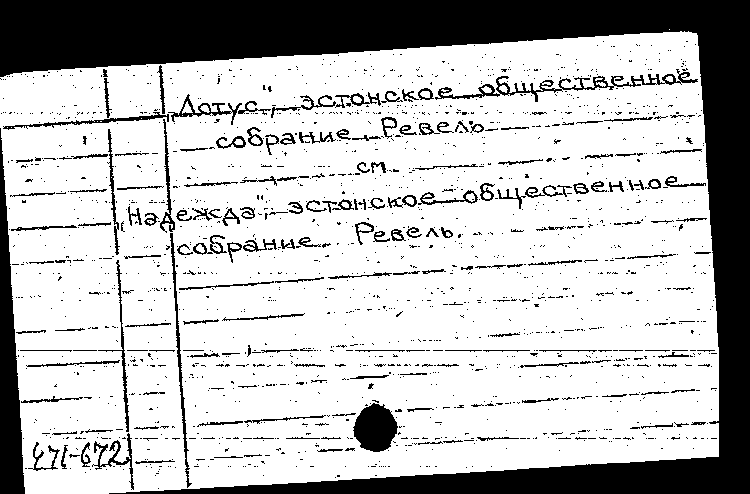 „Лотус", эстонское общественное
собрание, Ревель
см.
„Надежда", эстонское общественное
собрание Ревель.
471-672